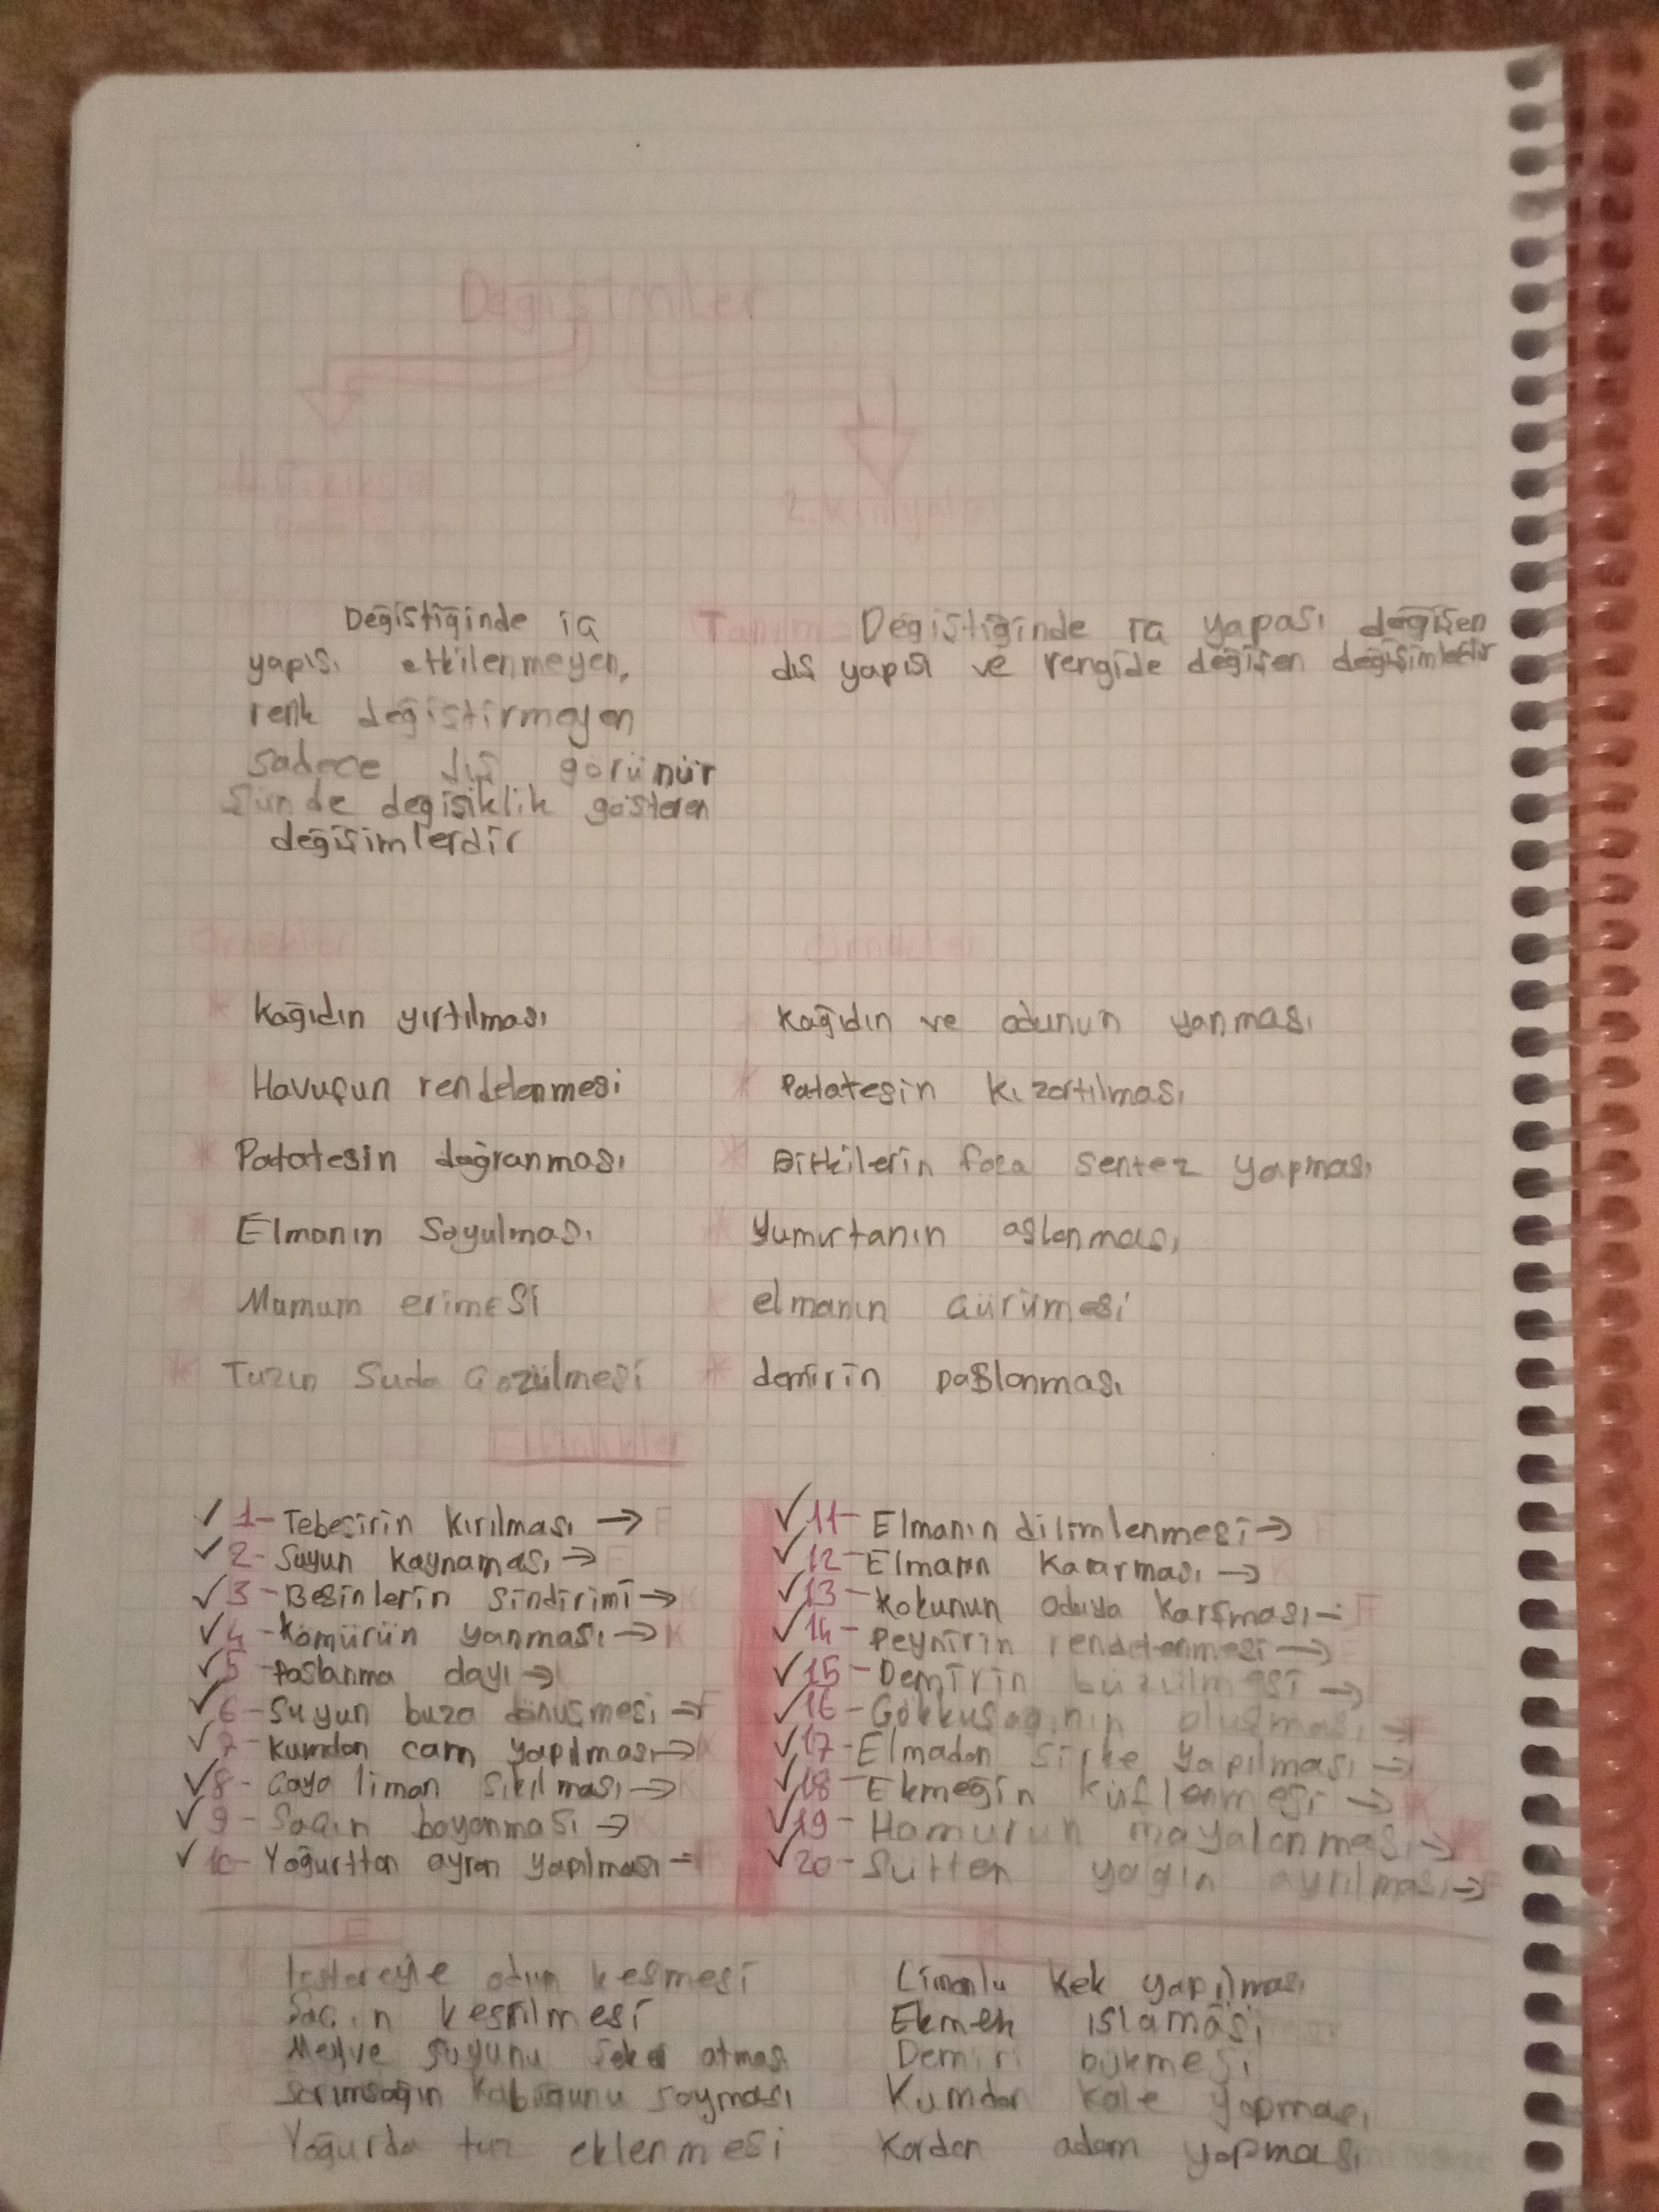 Değişimler
2. Kimyasal
Değiştiğinde iç
yapısı etkilenmeyen,
renk değiştirmeyen
sadece dış görünür
şünde değişiklik gösteren
değişimlerdir
Tanım= Değiştiğinde iç yapası değişen
dış yapısı ve rengide değişen değişimlerdir
Örnekler
* Kağıdın yırtılması
* Havuçun rendelenmesi
* Patatesin doğranması
* Elmanın soyulması
* Mumum erimesi
* Tuzun suda çözülmesi
Örnekler
* Kağıdın ve odunun yanması
* Patatesin kızartılması
* Bitkilerin foto sentez yapması
* Yumurtanın aşlanması
* elmanın çürümesi
* demirin paslanması
Etkinlikler
✓ 1- Tebeşirin kırılması → F
✓ 2- Suyun kaynaması → F
✓ 3- Besinlerin sindirimi → K
✓ 4- Kömürün yanması → K
✓ 5- Paslanma dayı →
✓ 6- Suyun buza dönüşmesi → F
✓ 7- Kumdan cam yapılması → K
✓ 8- Çaya liman sıkılması → K
✓ 9- Saçın boyanması → K
✓ 10- Yoğurttan ayran yapılması → F
✓ 11- Elmanın dilimlenmesi → F
✓ 12- Elmanın kararması → K
✓ 13- Kokunun odaya karışması → F
✓ 14- Peynirin rendelenmesi →
✓ 15- Demirin büzülmesi →
✓ 16- Gökkuşağının oluşması → F
✓ 17- Elmadan sirke yapılması →
✓ 18- Ekmeğin küflenmesi → K
✓ 19- Hamurun mayalanması → K
✓ 20- Sütten yağın ayrılması → F
F
testereyle odun kesmesi
Saçın kesilmesi
Meyve suyunu şeker atması
Sarımsağın kabuğunu soyması
Yoğurda tuz eklenmesi
Limonlu kek yapılması
Ekmek ıslaması
Demiri bükmesi
Kumdan kale yapması
Kardan adam yapması